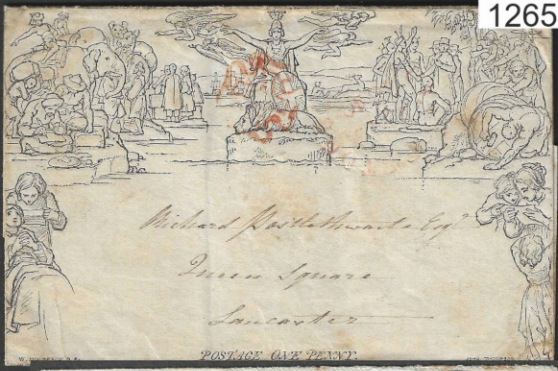 1265
Richard Postlethwaite Esqr
Queen Square
Lancaster
POSTAGE ONE PENNY.